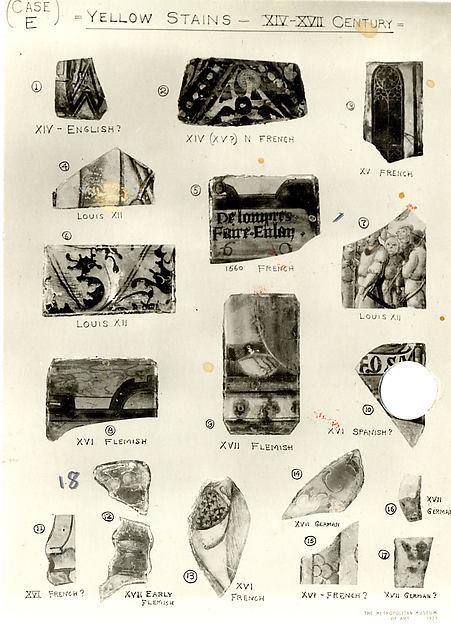 (CASE)
E
= YELLOW STAINS – XIV-XVII CENTURY =
1
XIV - ENGLISH?
2
XIV (XV?) N FRENCH
3
XV FRENCH
4
LOUIS XII
5
1560 FRENCH
6
LOUIS XII
7
LOUIS XII
8
XVI FLEMISH
9
XVII FLEMISH
10
XVI SPANISH?
18
11
XVI FRENCH?
12
XVII EARLY
FLEMISH
13
XVI
FRENCH
14
XVII GERMAN
15
XVI - FRENCH?
16
XVII
GERMA
17
XVII GERMAN?
THE METROPOLITAN MUSEUM
OF ART